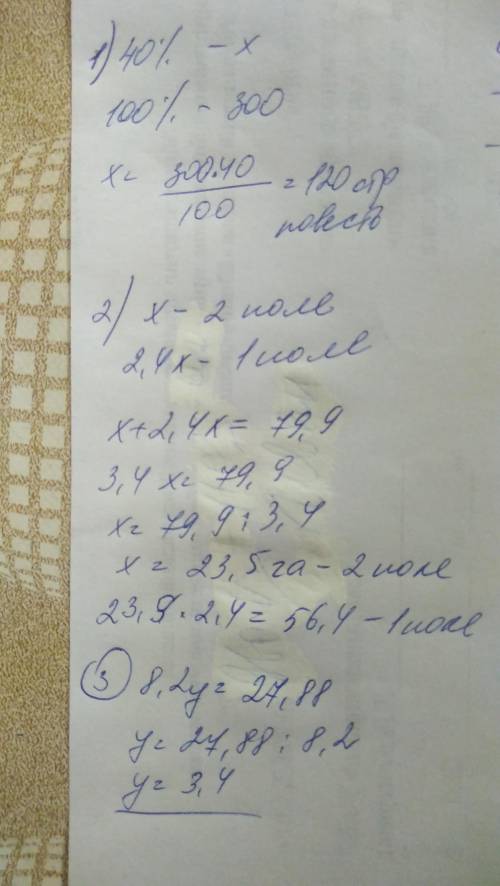 1) 40% - x
100% - 300
x = 300·40 / 100 = 120 стр
повесть
2) x - 2 поле
2,4x - 1 поле
x + 2,4x = 79,9
3,4x = 79,9
x = 79,9 : 3,4
x = 23,5 га - 2 поле
23,5 · 2,4 = 56,4 - 1 поле
3 8,2y = 27,88
y = 27,88 : 8,2
y = 3,4